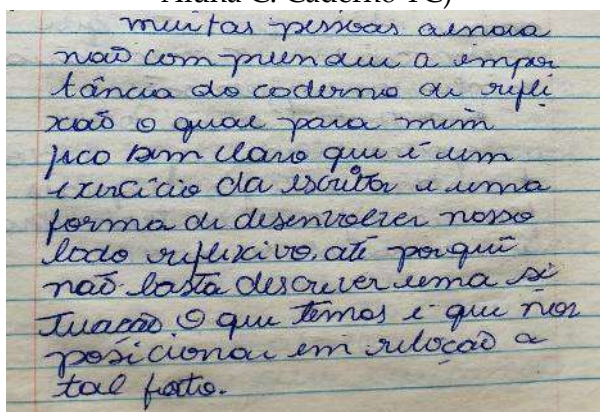 Aluna C. Caderno TC)
muitas pessoas ainda
não compreendeu a impor
tância do caderno de refle
xão o qual para mim
fico bem claro que é um
exercício da escrita e uma
forma de desenvolver nosso
lado reflexivo, até porquê
não basta descrever uma si
tuação o que temos é que nos
posicionar em relação a
tal fato.